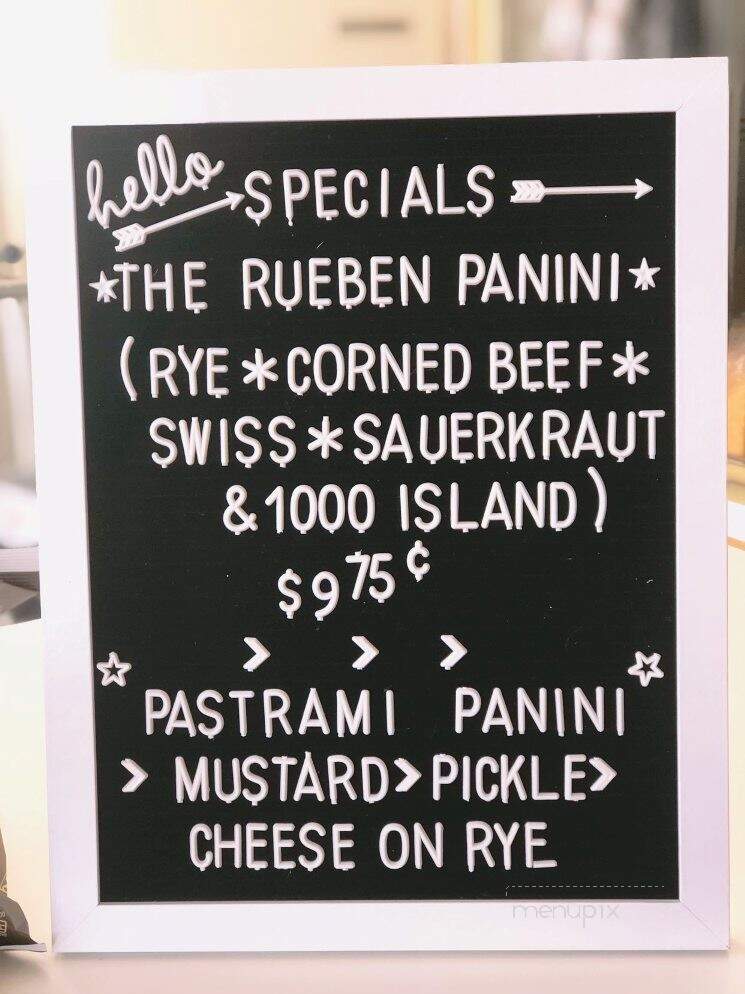 hello SPECIALS
THE RUEBEN PANINI
(RYE * CORNED BEEF *
SWISS * SAUERKRAUT
& 1000 ISLAND)
$9 75 ¢
> > >
PASTRAMI PANINI
> MUSTARD > PICKLE >
CHEESE ON RYE
menupix